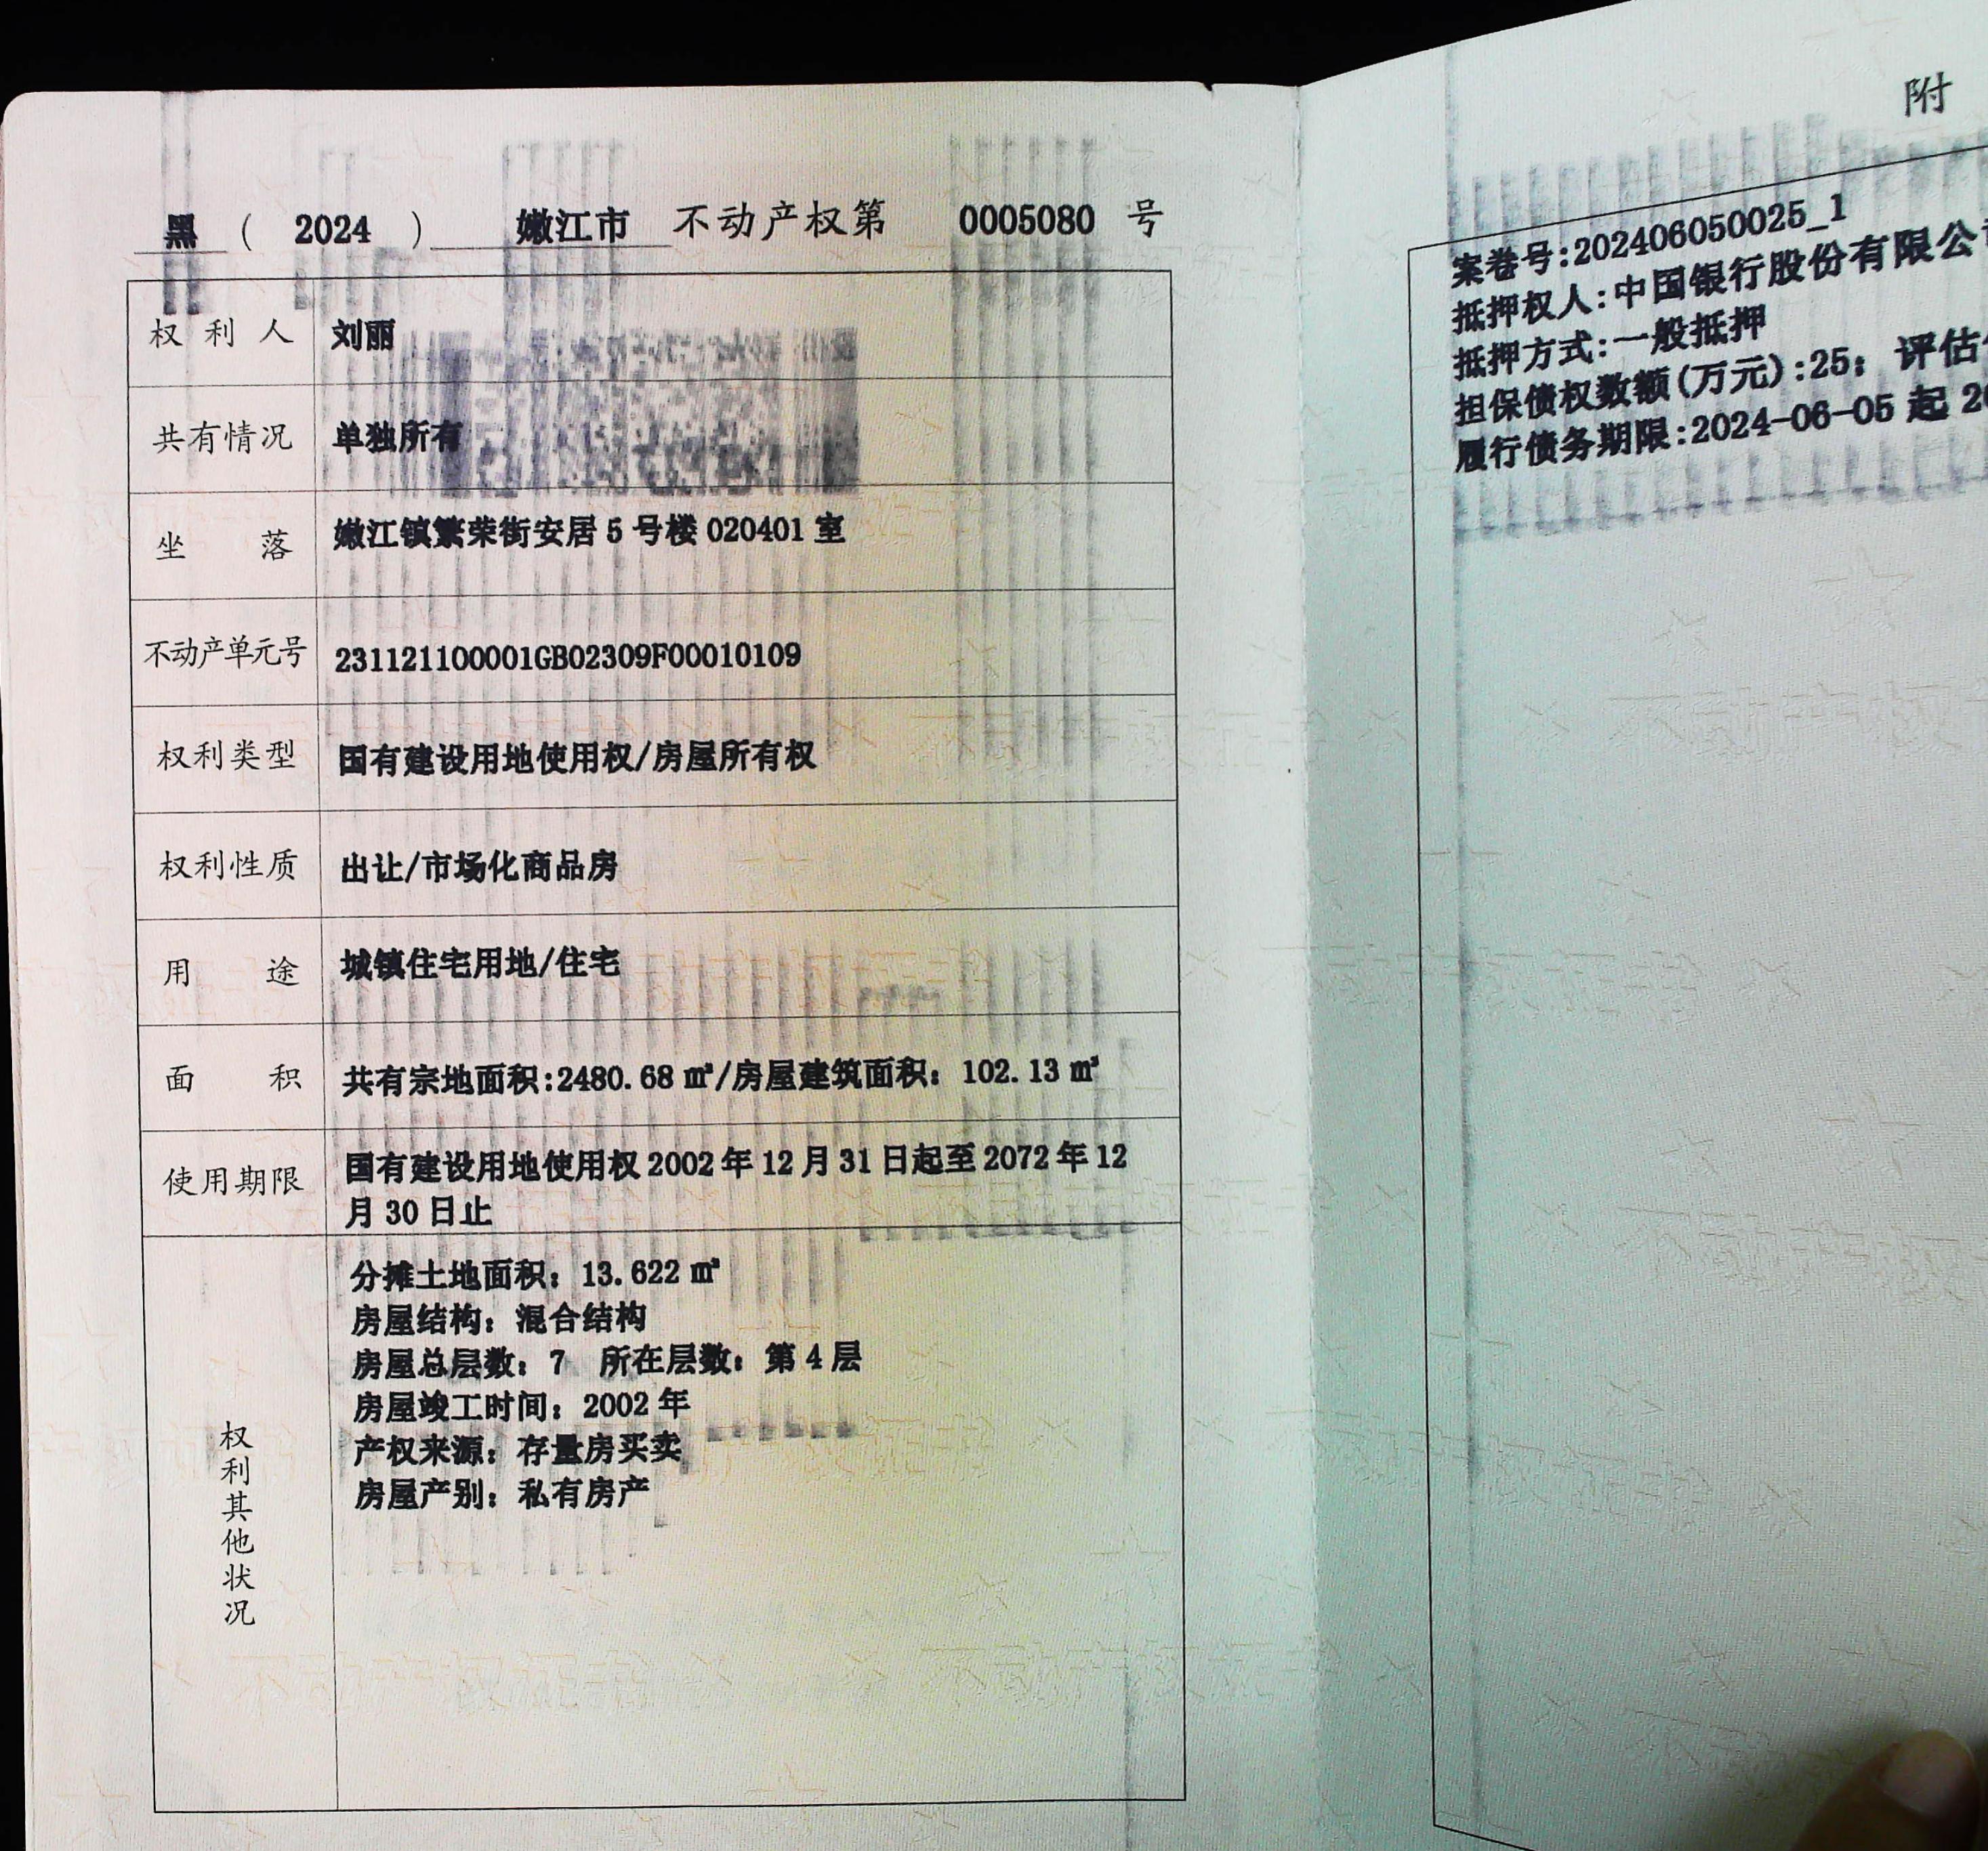 黑 ( 2024 ) 嫩江市 不动产权第 0005080 号
权利人 刘丽
共有情况 单独所有
坐落 嫩江镇繁荣街安居 5 号楼 020401 室
不动产单元号 231121100001GB02309F00010109
权利类型 国有建设用地使用权/房屋所有权
权利性质 出让/市场化商品房
用途 城镇住宅用地/住宅
面积 共有宗地面积:2480.68 ㎡/房屋建筑面积：102.13 ㎡
使用期限 国有建设用地使用权 2002 年 12 月 31 日起至 2072 年 12
月 30 日止
权利其他状况
分摊土地面积：13.622 ㎡
房屋结构：混合结构
房屋总层数：7 所在层数：第 4 层
房屋竣工时间：2002 年
产权来源：存量房买卖
房屋产别：私有房产
附
案卷号:202406050025_1
抵押权人:中国银行股份有限公
抵押方式:一般抵押
担保债权数额(万元):25；评估
履行债务期限:2024-06-05 起 20